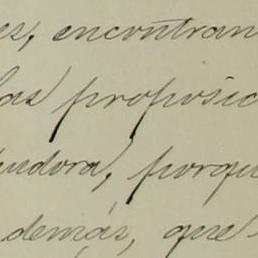 es, encontran
las proposic
eudora, porqu
demás, que